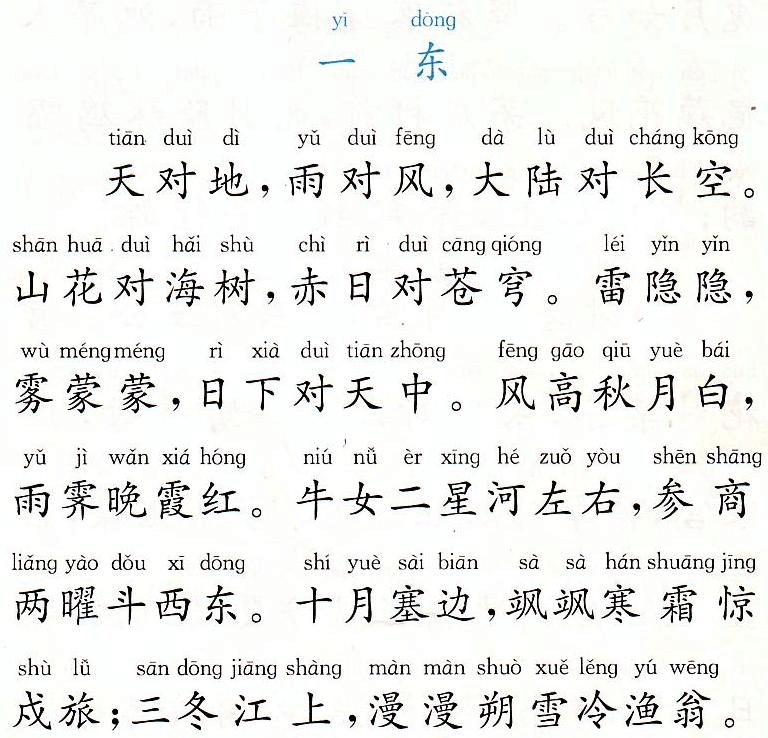 yī dōng
一 东
tiān duì dì yǔ duì fēng dà lù duì cháng kōng
天对地，雨对风，大陆对长空。
shān huā duì hǎi shù chì rì duì cāng qióng léi yǐn yǐn
山花对海树，赤日对苍穹。雷隐隐，
wù méng méng rì xià duì tiān zhōng fēng gāo qiū yuè bái
雾蒙蒙，日下对天中。风高秋月白，
yǔ jì wǎn xiá hóng niú nǚ èr xīng hé zuǒ yòu shēn shāng
雨霁晚霞红。牛女二星河左右，参商
liǎng yào dǒu xī dōng shí yuè sài biān sà sà hán shuāng jīng
两曜斗西东。十月塞边，飒飒寒霜惊
shù lǚ sān dōng jiāng shàng màn màn shuò xuě lěng yú wēng
戍旅；三冬江上，漫漫朔雪冷渔翁。